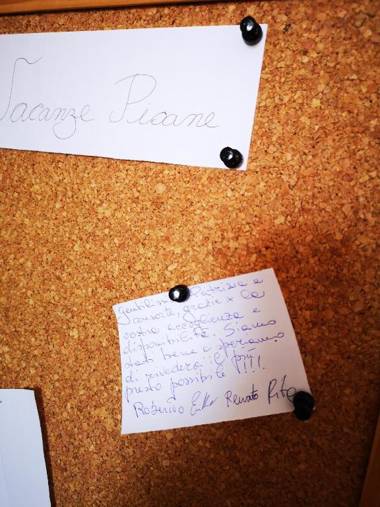 Vacanze Pisane
gentilissimi Patrizia e
consorte, grazie x la
vostra accoglienza e
disponibilità. Siamo
stati bene e speriamo
di rivederci il più
presto possibile!!!
Roberto Renato Rita